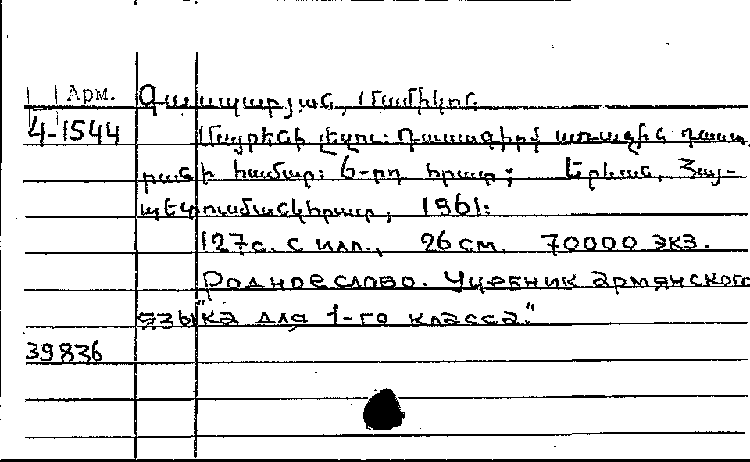 Арм.
Գասպարյան, Մամիկոն
4-1544
Մայրենի լեզու: Դասագիրք առաջին դասա
րանի համար: 6-րդ հրատ.; Երևան, Հայ-
պետուսմանկհրատ, 1961:
127с. с илл., 26 см. 70000 экз.
Родное слово. Учебник армянского
языка для 1-го класса."
39836